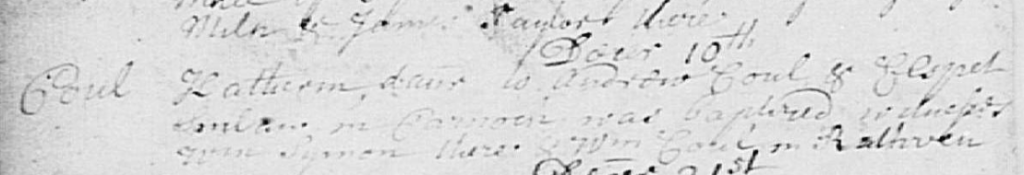 Miln & James Taylor there
Decer 10th
Coul Katharin daur to Andrew Coul & Elspet
in was baptized witnesses
Wm Symon there & Wm Coul in Rathven
Decer 21st